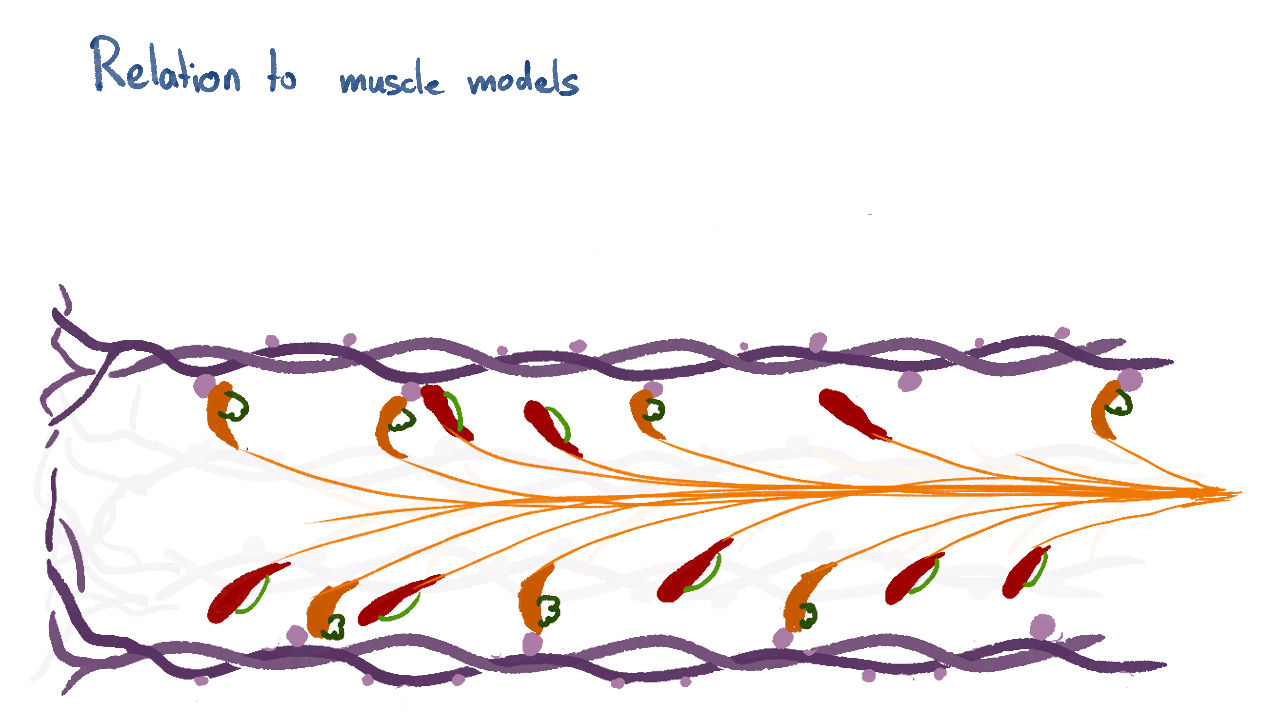 Relation to muscle models